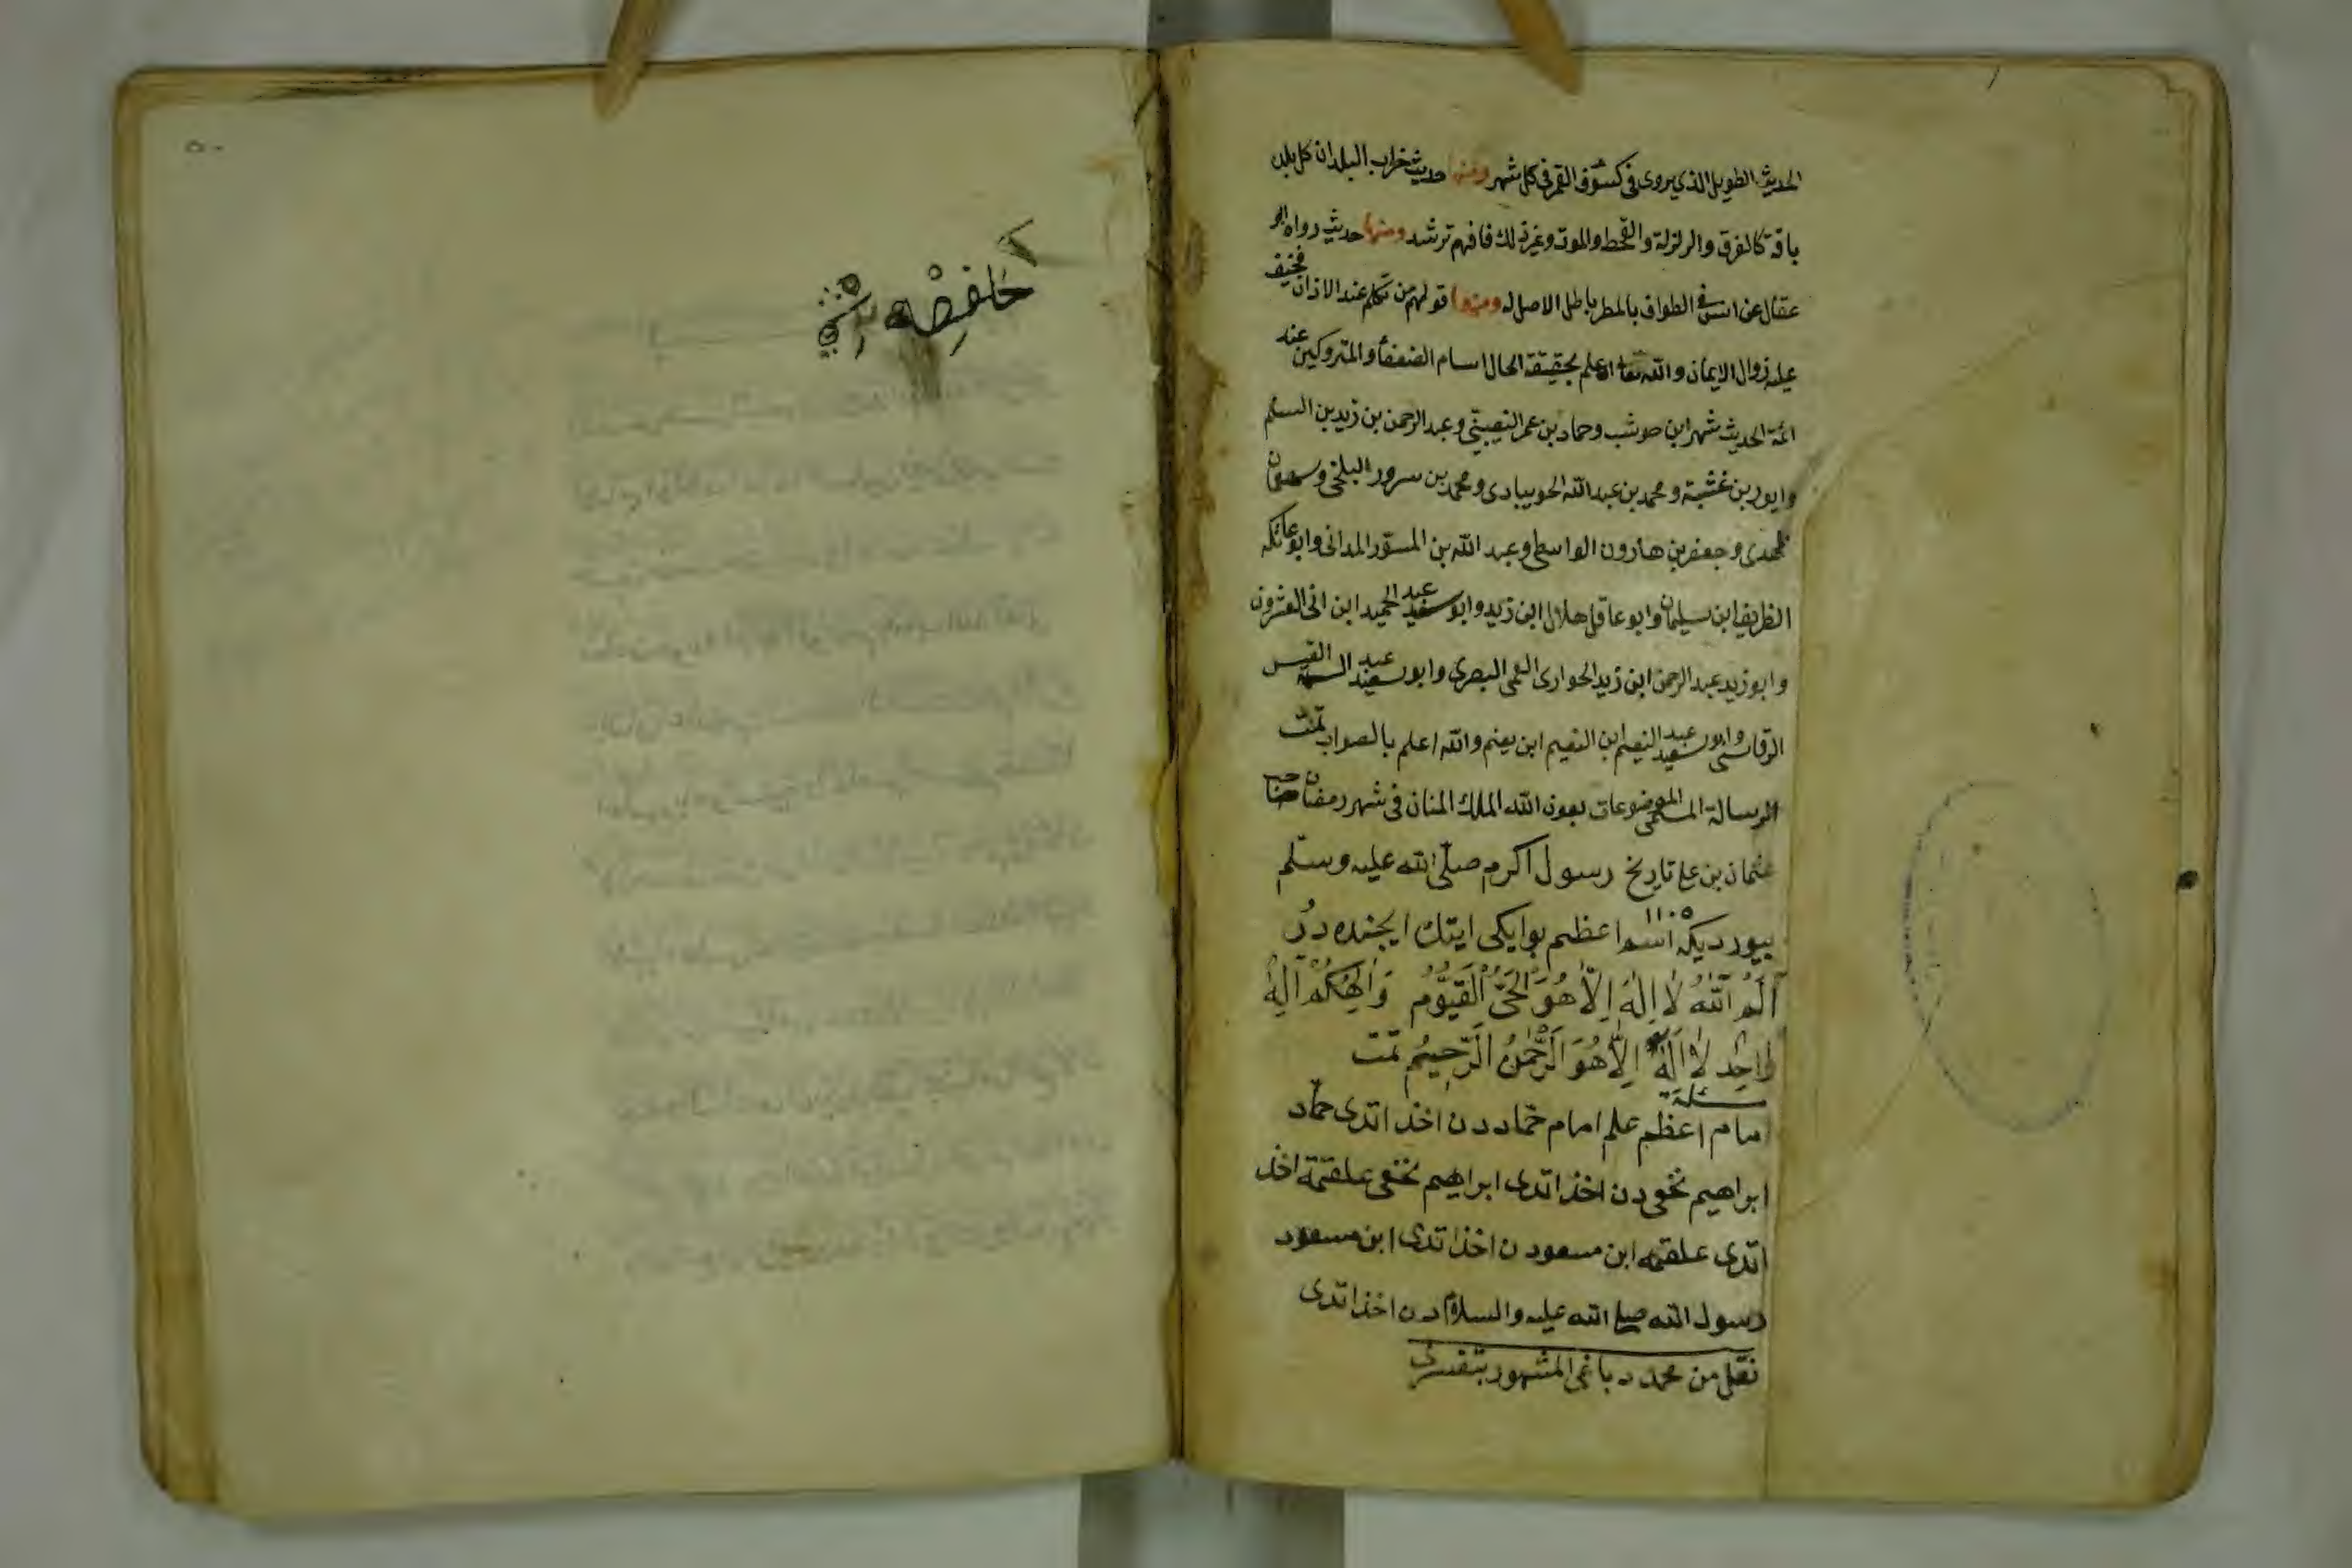 الحديث الطويل الذي يروى في كسوف القمر في كل شهر ومنها حديث خراب البلدان كل بلدة
بافة كالغرق والزلزلة والقحط والموت وغير ذلك فافهم ترشد ومنها حديث رواه ابو
عقال عن انس في الطواف بالمطر باطل لا اصل له ومنها قولهم من تكلم عند الاذان فخيف
عليه زوال الايمان والله تعالى اعلم بحقيقة الحال اسام الضعفاء والمتروكين عند
ائمة الحديث شهر ابن حوشب وحماد بن عمر النصيبي وعبد الرحمن بن زيد بن السلم
وايوب بن عتبة ومحمد بن عبد الله الجويبادى ومحمد بن سرور البلخى
وجعفر بن هارون الواسطى وعبد الله بن المسور المدانى وابو عاتكه
الظريف ابن سليمان وابو عاقل هلال ابن زيد وابو سعيد عبد الحميد ابن
وابو زيد عبد الرحمن ابن زيد الحوارى العمى البصرى وابو سعيد عبد القيس
الرقاسى وابو سعيد عبد النعيم ابن النعيم ابن يغنم والله اعلم بالصواب تمت
الرسالة المسمى الموضوعات بعون الله الملك المنان فى شهر رمضان
عثمان بن على تاريخ رسول اكرم صلى الله عليه وسلم
١١٠٥
بيورديكه اسم اعظم بو ايكى ايتك ايچنده در
الم الله لا اله الا هو الحى القيوم والهكم اله
واحد لا اله الا هو الرحمن الرحيم تمت
مسئلة
امام اعظم علم امام حماددن اخذ اتدى حماد
ابراهيم نخعى دن اخذ اتدى ابراهيم نخعى علقمة اخذ
اتدى علقمه ابن مسعود ن اخذ اتدى ابن مسعود
رسول الله صلى الله عليه والسلام دن اخذ اتدى
نقل من محمد دباغى المشهور بتفسرى
٥٠